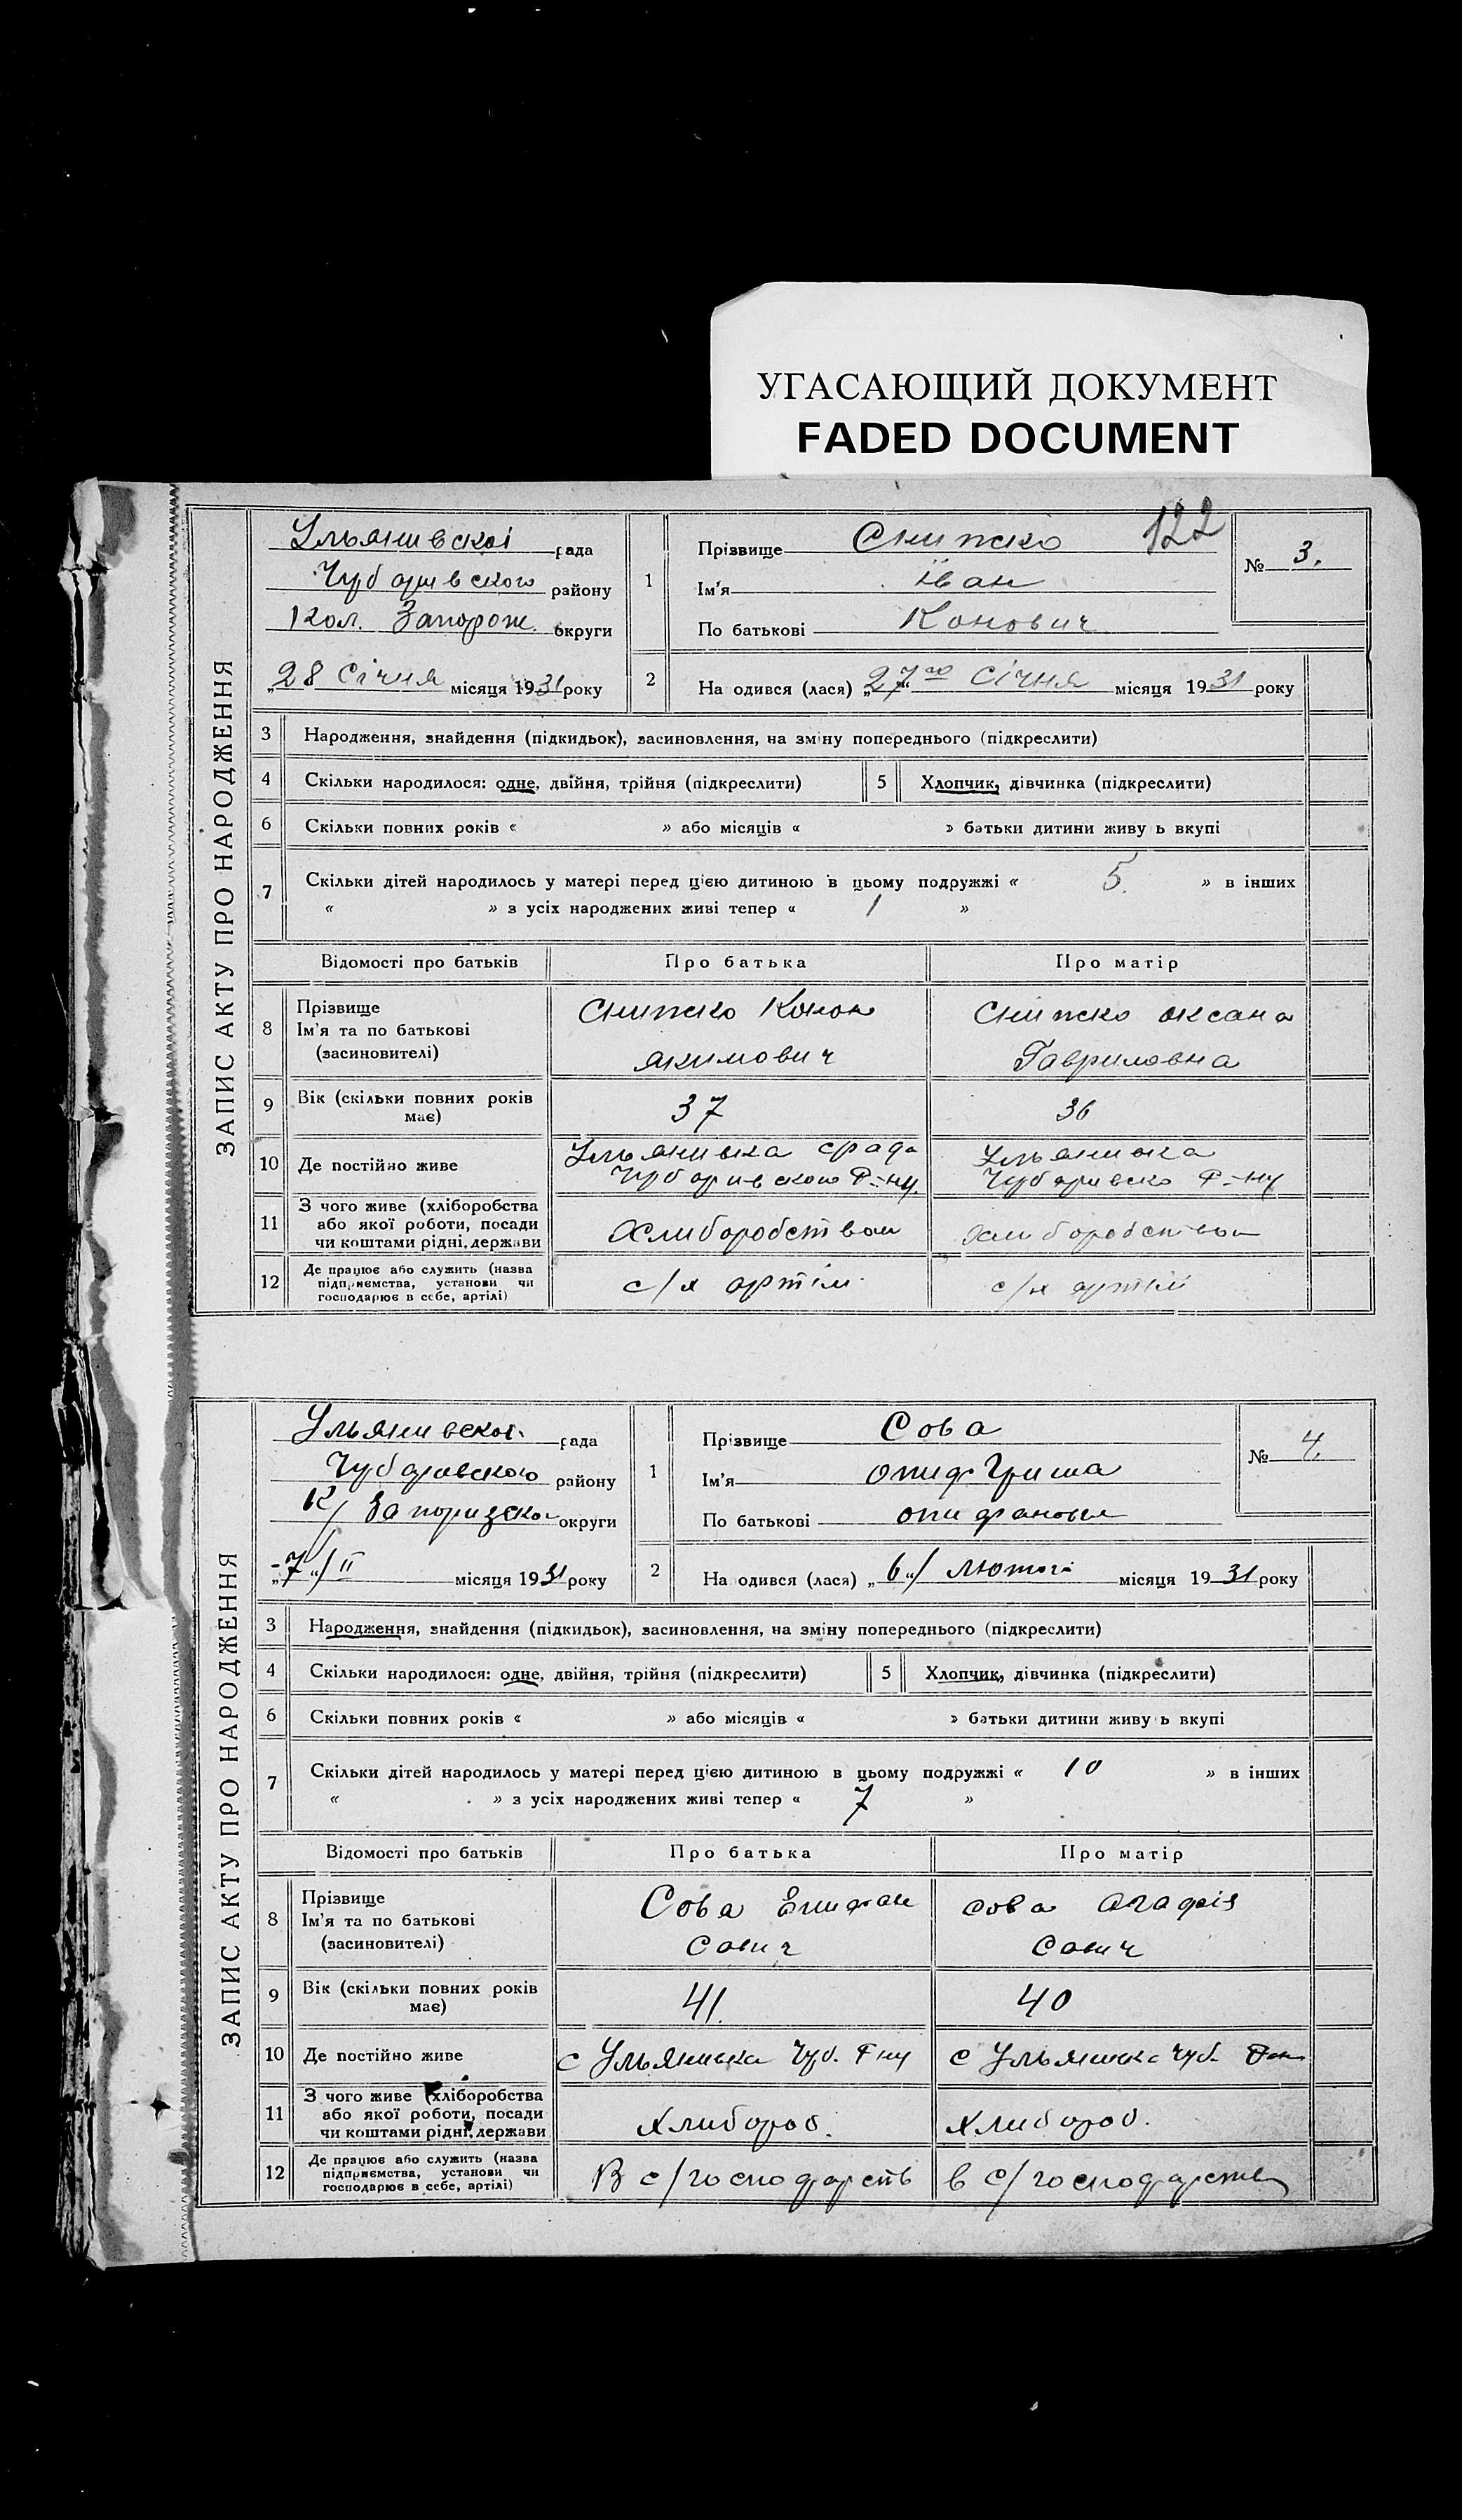 УГАСАЮЩИЙ ДОКУМЕНТ
FADED DOCUMENT
122
ЗАПИС АКТУ ПРО НАРОДЖЕННЯ
Ульянивскоі рада
Чубаривского району
Кол. Запорож. округи
„28 Січня місяця 1931 року
1 Прізвище
Ім'я Іван
По батькові Конович
№ 3.
2 На одився (лася) „27го Січня місяця 1931 року
3 Народження, знайдення (підкидьок), засиновлення, на зміну попереднього (підкреслити)
4 Скільки народилося: одне, двійня, трійня (підкреслити) 5 Хлопчик, дівчинка (підкреслити)
6 Скільки повних років « » або місяців « » батьки дитини живу ь вкупі
7 Скільки дітей народилось у матері перед цією дитиною в цьому подружжі « 5. » в інших
« » з усіх народжених живі тепер « 1 »
Відомості про батьків Про батька Про матір
8 Прізвище
Ім'я та по батькові
(засновителі)
Конон
якимович
оксана
Гавриловна
9 Вік (скільки повних років має) 37 36
10 Де постійно живе
Ульянивка срада
Чубаривского Р-ну.
Ульянивка
Чубаривско Р-ну
11 З чого живе (хліборобства
або якої роботи, посади
чи коштами рідні, держави
Хлиборобством хлиборобством
12 Де працює або служить (назва
підприємства, установи чи
господарює в себе, артілі)
с/х артіли с/х артілі
ЗАПИС АКТУ ПРО НАРОДЖЕННЯ
Ульянивскоі рада
Чубаровского району
К/Запоризскои округи
„7“/II місяця 1931 року
1 Прізвище Сова
Ім'я Гриша
По батькові
№ 4.
2 На одився (лася) „6“/ Лютого місяця 1931 року
3 Народження, знайдення (підкидьок), засиновлення, на зміну попереднього (підкреслити)
4 Скільки народилося: одне, двійня, трійня (підкреслити) 5 Хлопчик, дівчинка (підкреслити)
6 Скільки повних років « » або місяців « » батьки дитини живу ь вкупі
7 Скільки дітей народилось у матері перед цією дитиною в цьому подружжі « 10 » в інших
« » з усіх народжених живі тепер « 7 »
Відомості про батьків Про батька Про матір
8 Прізвище
Ім'я та по батькові
(засиновителі)
Сова Епифан
Сова Агафія
9 Вік (скільки повних років має) 41. 40
10 Де постійно живе с Ульянивка Чуб. Р ну с Ульянивка Чуб.
11 З чого живе (хліборобства
або якої роботи, посади
чи коштами рідні, держави
хлибороб. хлибороб.
12 Де працює або служить (назва
підприємства, установи чи
господарює в себе, артілі)
В с/господарств в с/господарстві